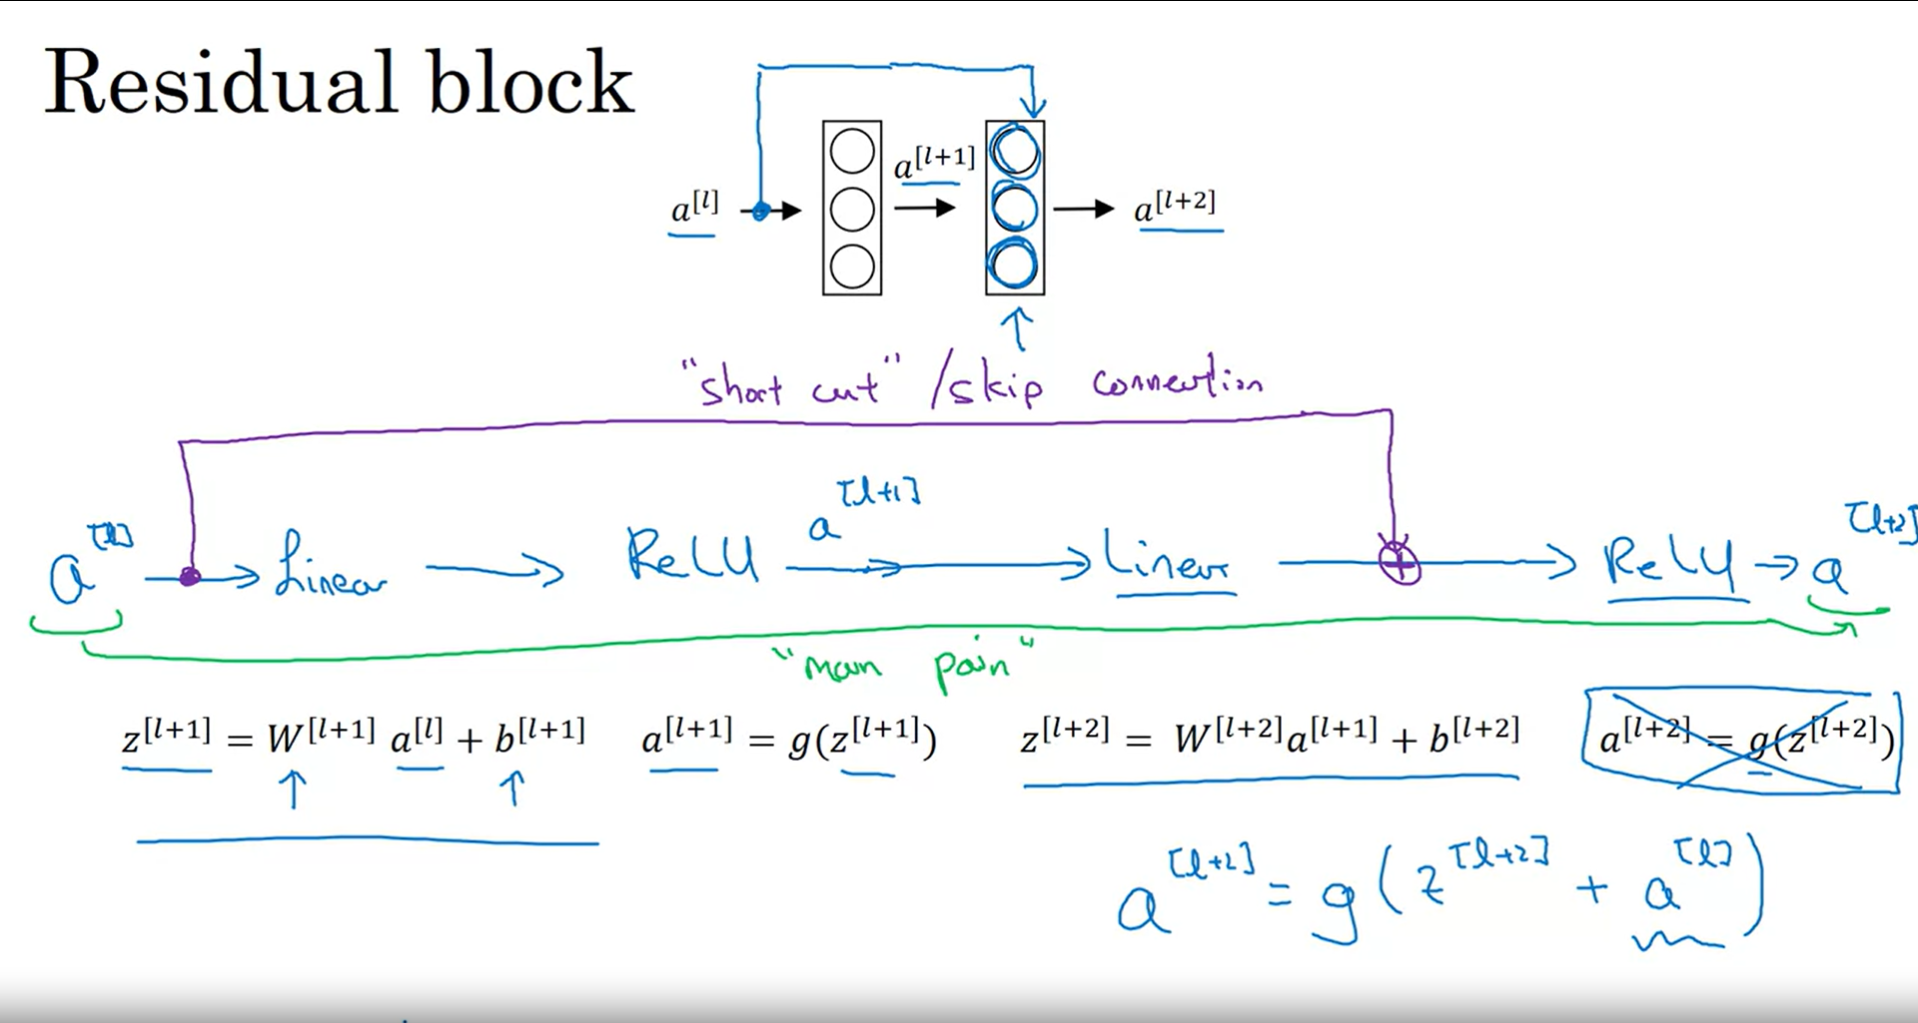 Residual block
a[l] a[l+1] a[l+2]
"short cut" / skip connection
a[l] → Linear → ReLU a[l+1] → Linear → ⊕ → ReLU → a[l+2]
"main path"
z[l+1] = W[l+1] a[l] + b[l+1] a[l+1] = g(z[l+1]) z[l+2] = W[l+2]a[l+1] + b[l+2] a[l+2] = g(z[l+2])
a[l+2] = g(z[l+2] + a[l])